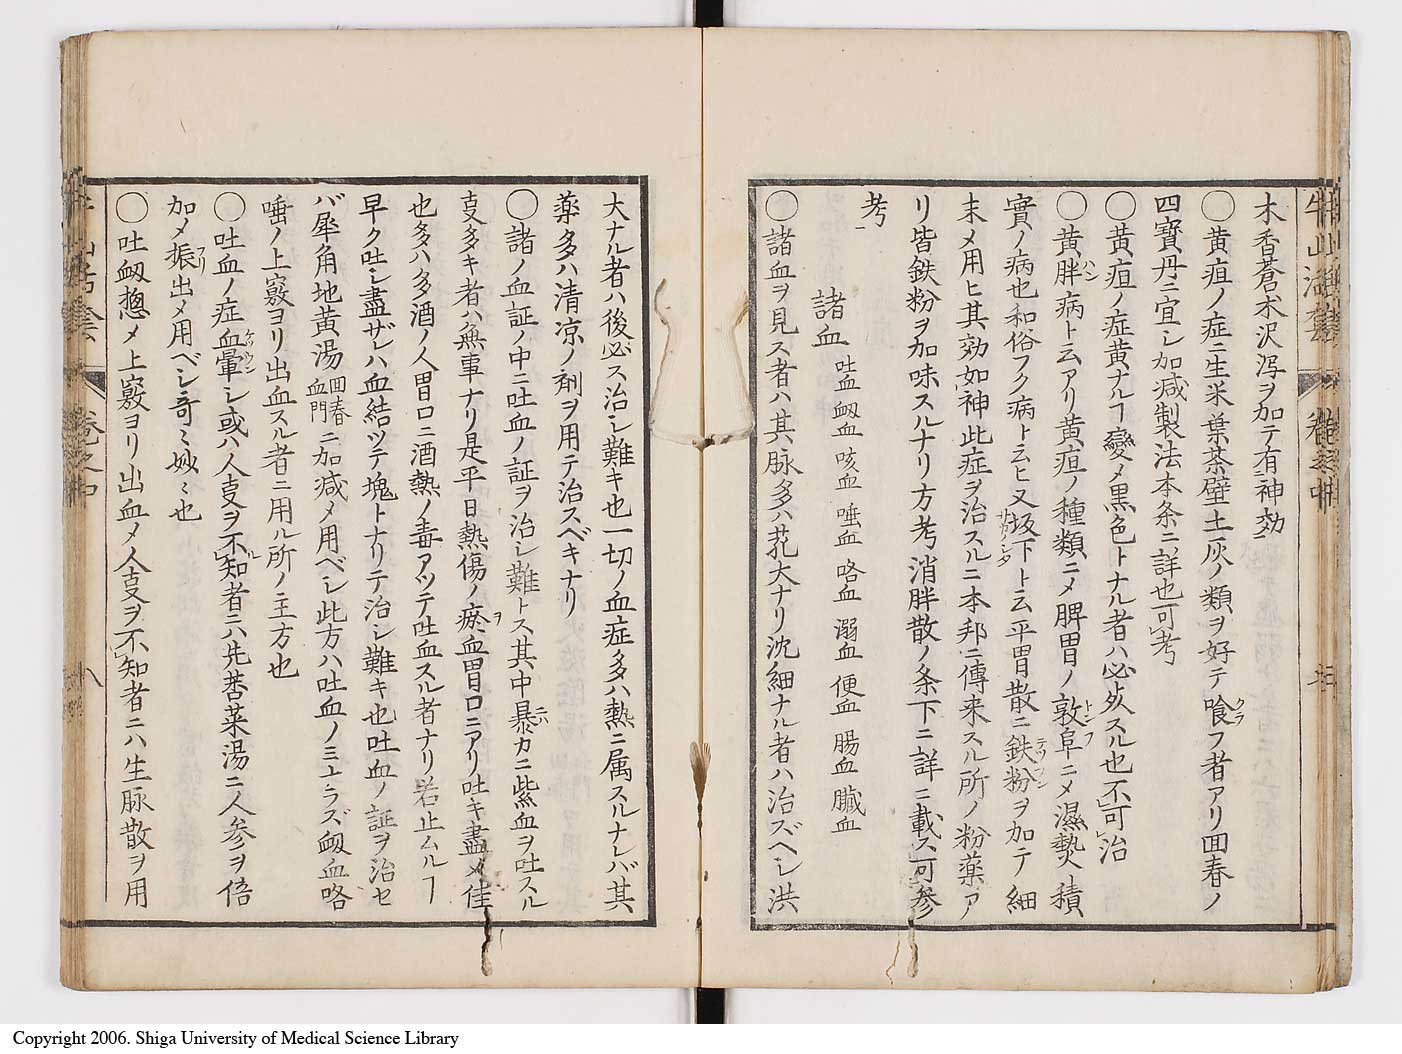 木香蒼朮沢瀉ヲ加テ有神効
○黄疸ノ症ニ生米葉茶壁土灰ノ類ヲ好テ喰フ者アリ回春ノ
四寳丹ニ宜シ加減製法本条ニ詳也可考
○黄疸ノ症黄ナルヿ變メ黒色トナル者ハ必死スル也不可治
○黄胖病ト云アリ黄疸ノ種類ニメ脾胃ノ敦阜ニメ濕熱積
實ノ病也和俗フク病ト云ヒ又坂下ト云平胃散ニ鉄粉ヲ加テ細
末メ用ヒ其効如神此症ヲ治スルニ本邦ニ傳来スル所ノ粉薬ア
リ皆鉄粉ヲ加味スルナリ方考消胖散ノ条下ニ詳ニ載ス可参
考
諸血 吐血衂血咳血唾血咯血溺血便血腸血臓血
○諸血ヲ見ス者ハ其脉多ハ芤大ナリ沈細ナル者ハ治スベシ洪
大ナル者ハ後必ス治シ難キ也一切ノ血症多ハ熱ニ属スルナレバ其
薬多ハ清凉ノ剤ヲ用テ治スベキナリ
○諸ノ血証ノ中ニ吐血ノ証ヲ治シ難トス其中暴カニ紫血ヲ吐スル
支多キ者ハ無事ナリ是平日熱傷ノ瘀血胃口ニアリ吐キ盡メ佳
也多ハ多酒ノ人胃口ニ酒熱ノ毒アツテ吐血スル者ナリ若止ムルヿ
早ク吐シ盡ザレハ血結ツテ塊トナリテ治シ難キ也吐血ノ証ヲ治セ
バ犀角地黄湯回春血門ニ加减メ用ベシ此方ハ吐血ノミナラズ衂血咯
唾ノ上竅ヨリ出血スル者ニ用ル所ノ主方也
○吐血ノ症血暈シ或ハ人支ヲ不知者ニハ先莟菜湯ニ人参ヲ倍
加メ振出メ用ベシ奇ミ妙ミ也
○吐衂㧾メ上竅ヨリ出血メ人支ヲ不知者ニハ生脉散ヲ用
牛山活套
卷之中
八